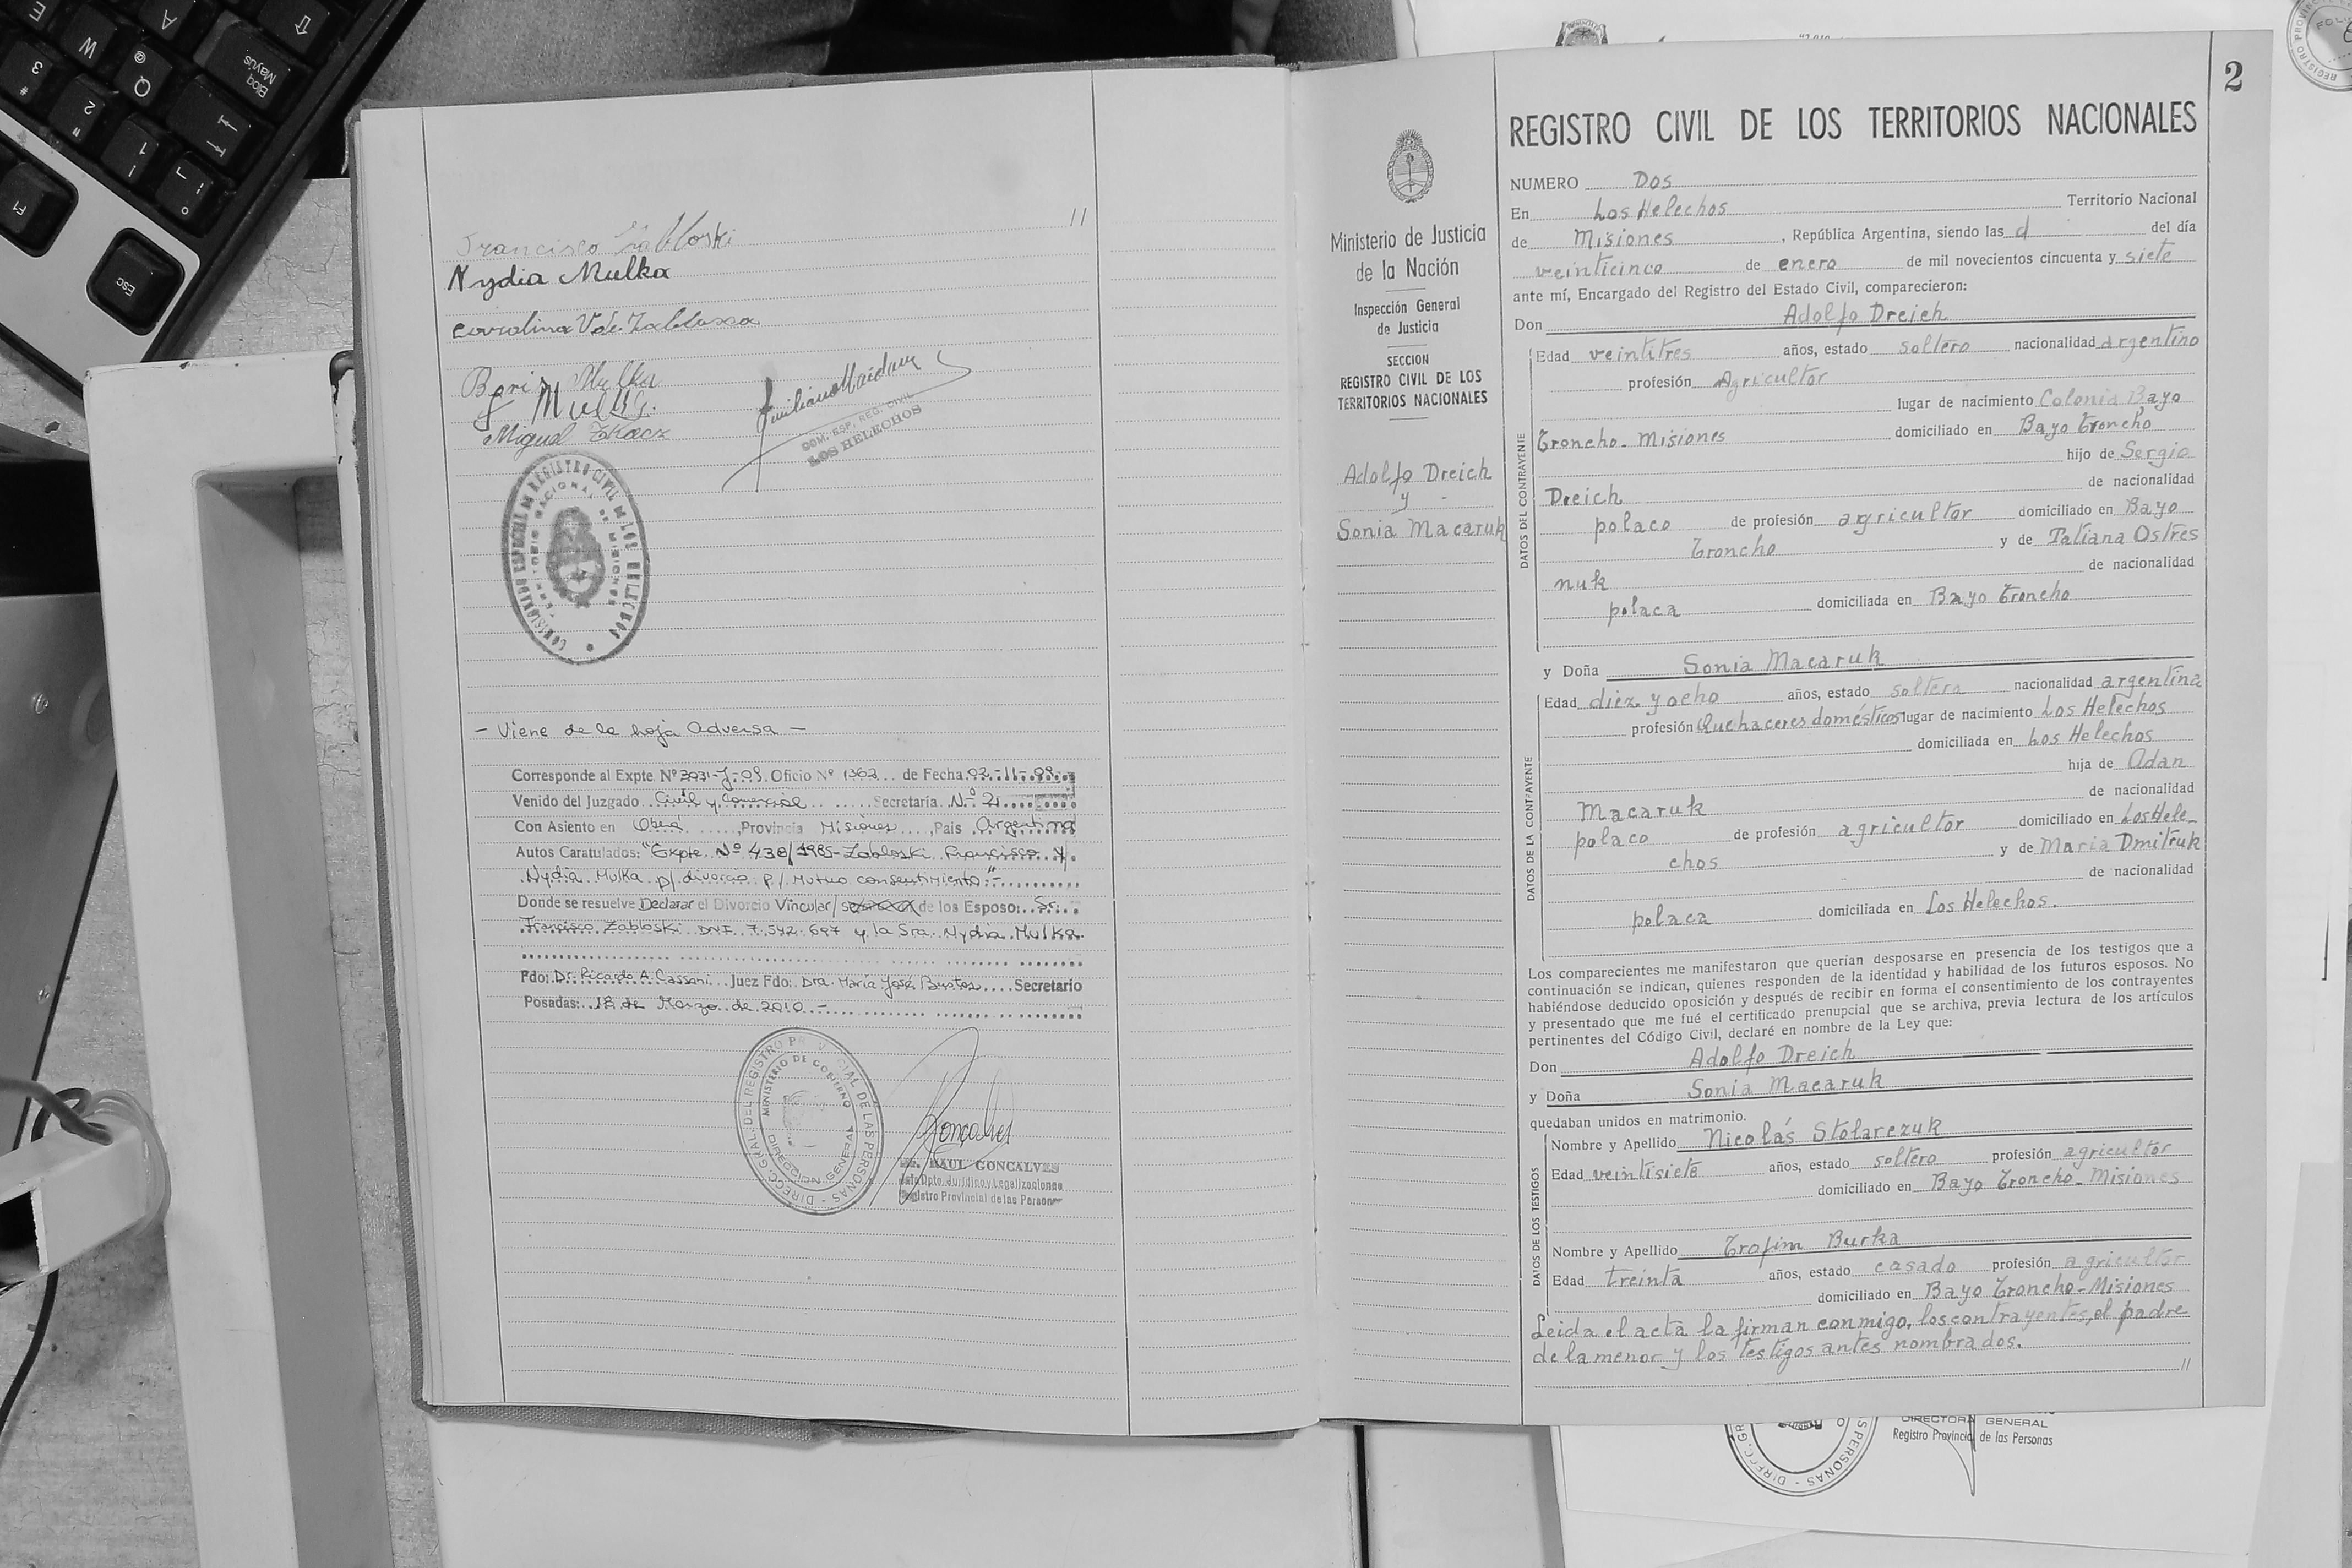 Francisco Zabloski
//
Nydia Mulka
Boris Mulka
Miguel Tkacz
COM. ESP. REG. CIVIL
LOS HELECHOS
COMISIONADO ESPECIAL DE REGISTRO CIVIL DE LOS HELECHOS
TERRITORIO NACIONAL DE MISIONES
- Viene de la hoja Adversa -
Corresponde al Expte. Nº 3931-J-09. Oficio Nº 1362 de Fecha 02-11-09
Venido del Juzgado Civil y Comercial Secretaría Nº 2
Con Asiento en Oberá, Provincia Misiones, Pais Argentina
Autos Caratulados: "Expte. Nº 438/1985- Zabloski Francisco y
Nydia Mulka p/ divorcio p/ Mutuo consentimiento."-
Donde se resuelve Declarar el Divorcio Vincular/ de los Esposo: Sr.
Francisco Zabloski DNI 7.542.697 y la Sra. Nydia Mulka
Fdo: Dr. Ricardo A. Cassoni Juez Fdo: Dra. María José Bustos Secretario
Posadas: 18 de Marzo de 2010.-
DIRECC. GRAL. DEL REGISTRO PROVINCIAL DE LAS PERSONAS
MINISTERIO DE GOBIERNO
DIRECCION GENERAL
RAUL GONCALVES
Jefe Dpto. Jurídico y Legalizaciones
Registro Provincial de las Personas
Ministerio de Justicia
de la Nación
Inspección General
de Justicia
SECCION
REGISTRO CIVIL DE LOS
TERRITORIOS NACIONALES
Adolfo Dreich
y
Sonia Macaruk
2
REGISTRO CIVIL DE LOS TERRITORIOS NACIONALES
NUMERO Dos
En Los Helechos Territorio Nacional
de Misiones, República Argentina, siendo las d del día
veinticinco de enero de mil novecientos cincuenta y siete
ante mí, Encargado del Registro del Estado Civil, comparecieron:
Don Adolfo Dreich
DATOS DEL CONTRAYENTE
Edad veintitres años, estado soltero nacionalidad argentino
profesión Agricultor
lugar de nacimiento Colonia Bayo
Troncho - Misiones domiciliado en Bayo Troncho
hijo de Sergio
Dreich de nacionalidad
polaco de profesión agricultor domiciliado en Bayo
Troncho y de Tatiana Ostres
nuk de nacionalidad
polaca domiciliada en Bayo Troncho
y Doña Sonia Macaruk
DATOS DE LA CONTRAYENTE
Edad diez y ocho años, estado soltera nacionalidad argentina
profesión Quehaceres domésticos lugar de nacimiento Los Helechos
domiciliada en Los Helechos
hija de Adan
Macaruk de nacionalidad
polaco de profesión agricultor domiciliado en Los Hele-
chos y de Maria Dmitruk
de nacionalidad
polaca domiciliada en Los Helechos.
Los comparecientes me manifestaron que querían desposarse en presencia de los testigos que a
continuación se indican, quienes responden de la identidad y habilidad de los futuros esposos. No
habiéndose deducido oposición y después de recibir en forma el consentimiento de los contrayentes
y presentado que me fué el certificado prenupcial que se archiva, previa lectura de los artículos
pertinentes del Código Civil, declaré en nombre de la Ley que:
Don Adolfo Dreich
y Doña Sonia Macaruk
quedaban unidos en matrimonio.
DATOS DE LOS TESTIGOS
Nombre y Apellido Nicolás Stolarczuk
Edad veintisiete años, estado soltero profesión agricultor
domiciliado en Bayo Troncho - Misiones
Nombre y Apellido Trofim Burka
Edad treinta años, estado casado profesión agricultor
domiciliado en Bayo Troncho - Misiones
Leida el acta la firman conmigo, los contrayentes, el padre
de la menor y los testigos antes nombrados.
//
DIRECTORA GENERAL
Registro Provincial de las Personas